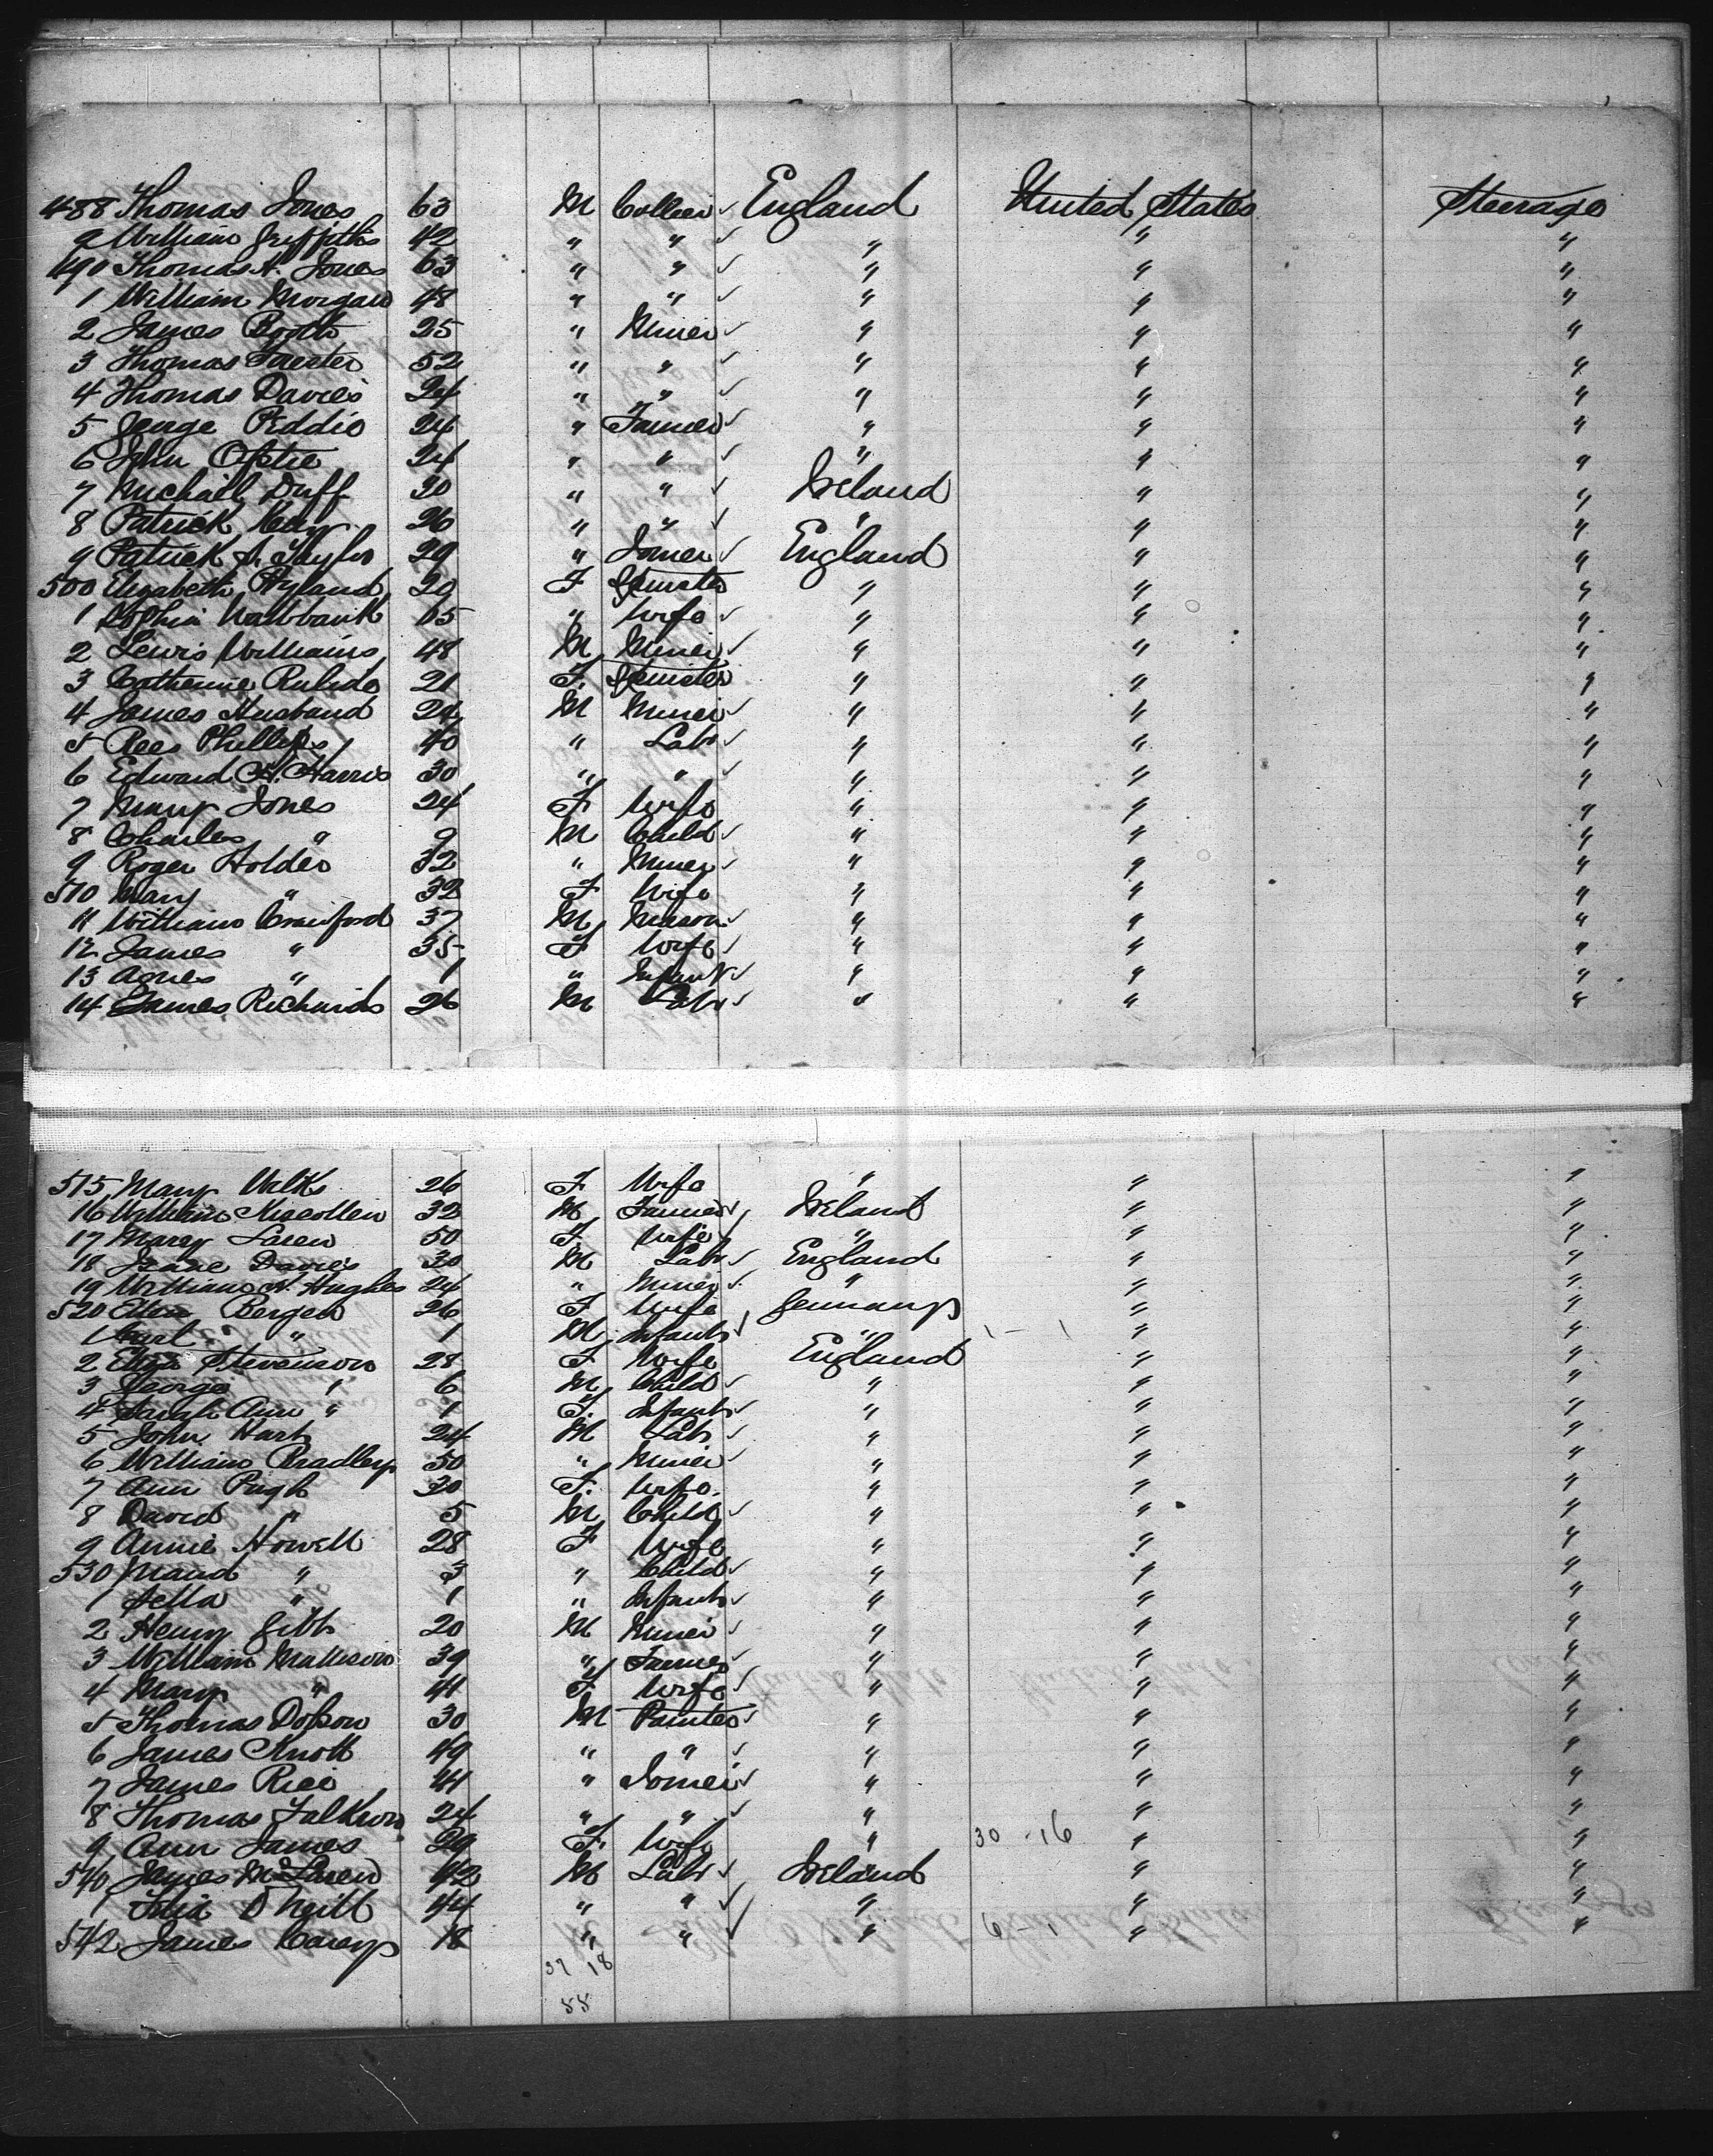 488 Thomas Jones 63 M Collier ✓ England United States Steerage
9 William Griffiths 42 " " ✓ " " "
490 Thomas H. Jones 63 " " ✓ " " "
1 William Morgan 48 " " ✓ " " "
2 James Booth 25 " Miner ✓ " " "
3 Thomas Forester 52 " " ✓ " " "
4 Thomas Davies 24 " " ✓ " " "
5 George Peddie 24 " Farmer ✓ " " "
6 John 24 " " ✓ " " "
7 Michael Duff 20 " " ✓ Ireland " "
8 Patrick 26 " " ✓ " " "
9 Patrick Taylor 29 " Joiner ✓ England " "
500 Elizabeth Ryland 20 F Spinster " " "
1 Sophia Wallbank 65 " Wife ✓ " " "
2 Lewis Williams 48 M Miner ✓ " " "
3 Catherine 21 F. Spinster " " "
4 James Husband 24 M Miner ✓ " " "
5 Rees Phillips 40 " Labr ✓ " " "
6 Edward H. Harris 30 " " ✓ " " "
7 Mary Jones 24 F Wife " " "
8 Charles " 9 M Child ✓ " " "
9 Roger Holder 32 " Miner ✓ " " "
510 Mary " 32 F Wife " " "
11 William Crawford 37 M Mason ✓ " " "
12 James " 35 F Wife ✓ " " "
13 Agnes " 1 " Infant ✓ " " "
14 James Richards 26 M Labr ✓ " " "
515 Mary Wilks 26 F Wife " " "
16 William 32 M Farmer ✓ Ireland " "
17 Mary 50 F. Wife ✓ " " "
18 Isaac Davies 30 M Labr ✓ England " "
19 William H. Hughes 24 " Miner ✓ " " "
520 Bergen 26 F Wife Germany "
1 Carl " 1 M Infant ✓ " 1 - 1 " "
2 Eliza Stevenson 28 F Wife England " "
3 George " 6 M Child ✓ " " "
4 Sarah Ann " 1 F. Infant ✓ " " "
5 John Hart 24 M Labr ✓ " " "
6 William Bradley 50 " Miner ✓ " " "
7 Ann Pugh 30 F. Wife. " " "
8 David " 5 M Child ✓ " " "
9 Annie Howell 28 F Wife " " "
530 Maud " 3 " Child ✓ " " "
1 " 1 " Infant ✓ " " "
2 Henry Gibb 20 M Miner ✓ " " "
3 William Mallison 39 " Farmer ✓ " " "
4 Mary " 41 F Wife ✓ " " "
5 Thomas Dobson 30 M Painter ✓ " " "
6 James Knott 49 " " ✓ " " "
7 James Rice 41 " Joiner ✓ " " "
8 Thomas Falkner 24 " " ✓ " " "
9 Ann James 29 F. Wife " 30 - 16 " "
540 James McLaren 42 M Labr ✓ Ireland " "
1 O'Neill 44 " " ✓ " " "
542 James Carey 18 " " ✓ " 6 - 1 " "
37 18
55